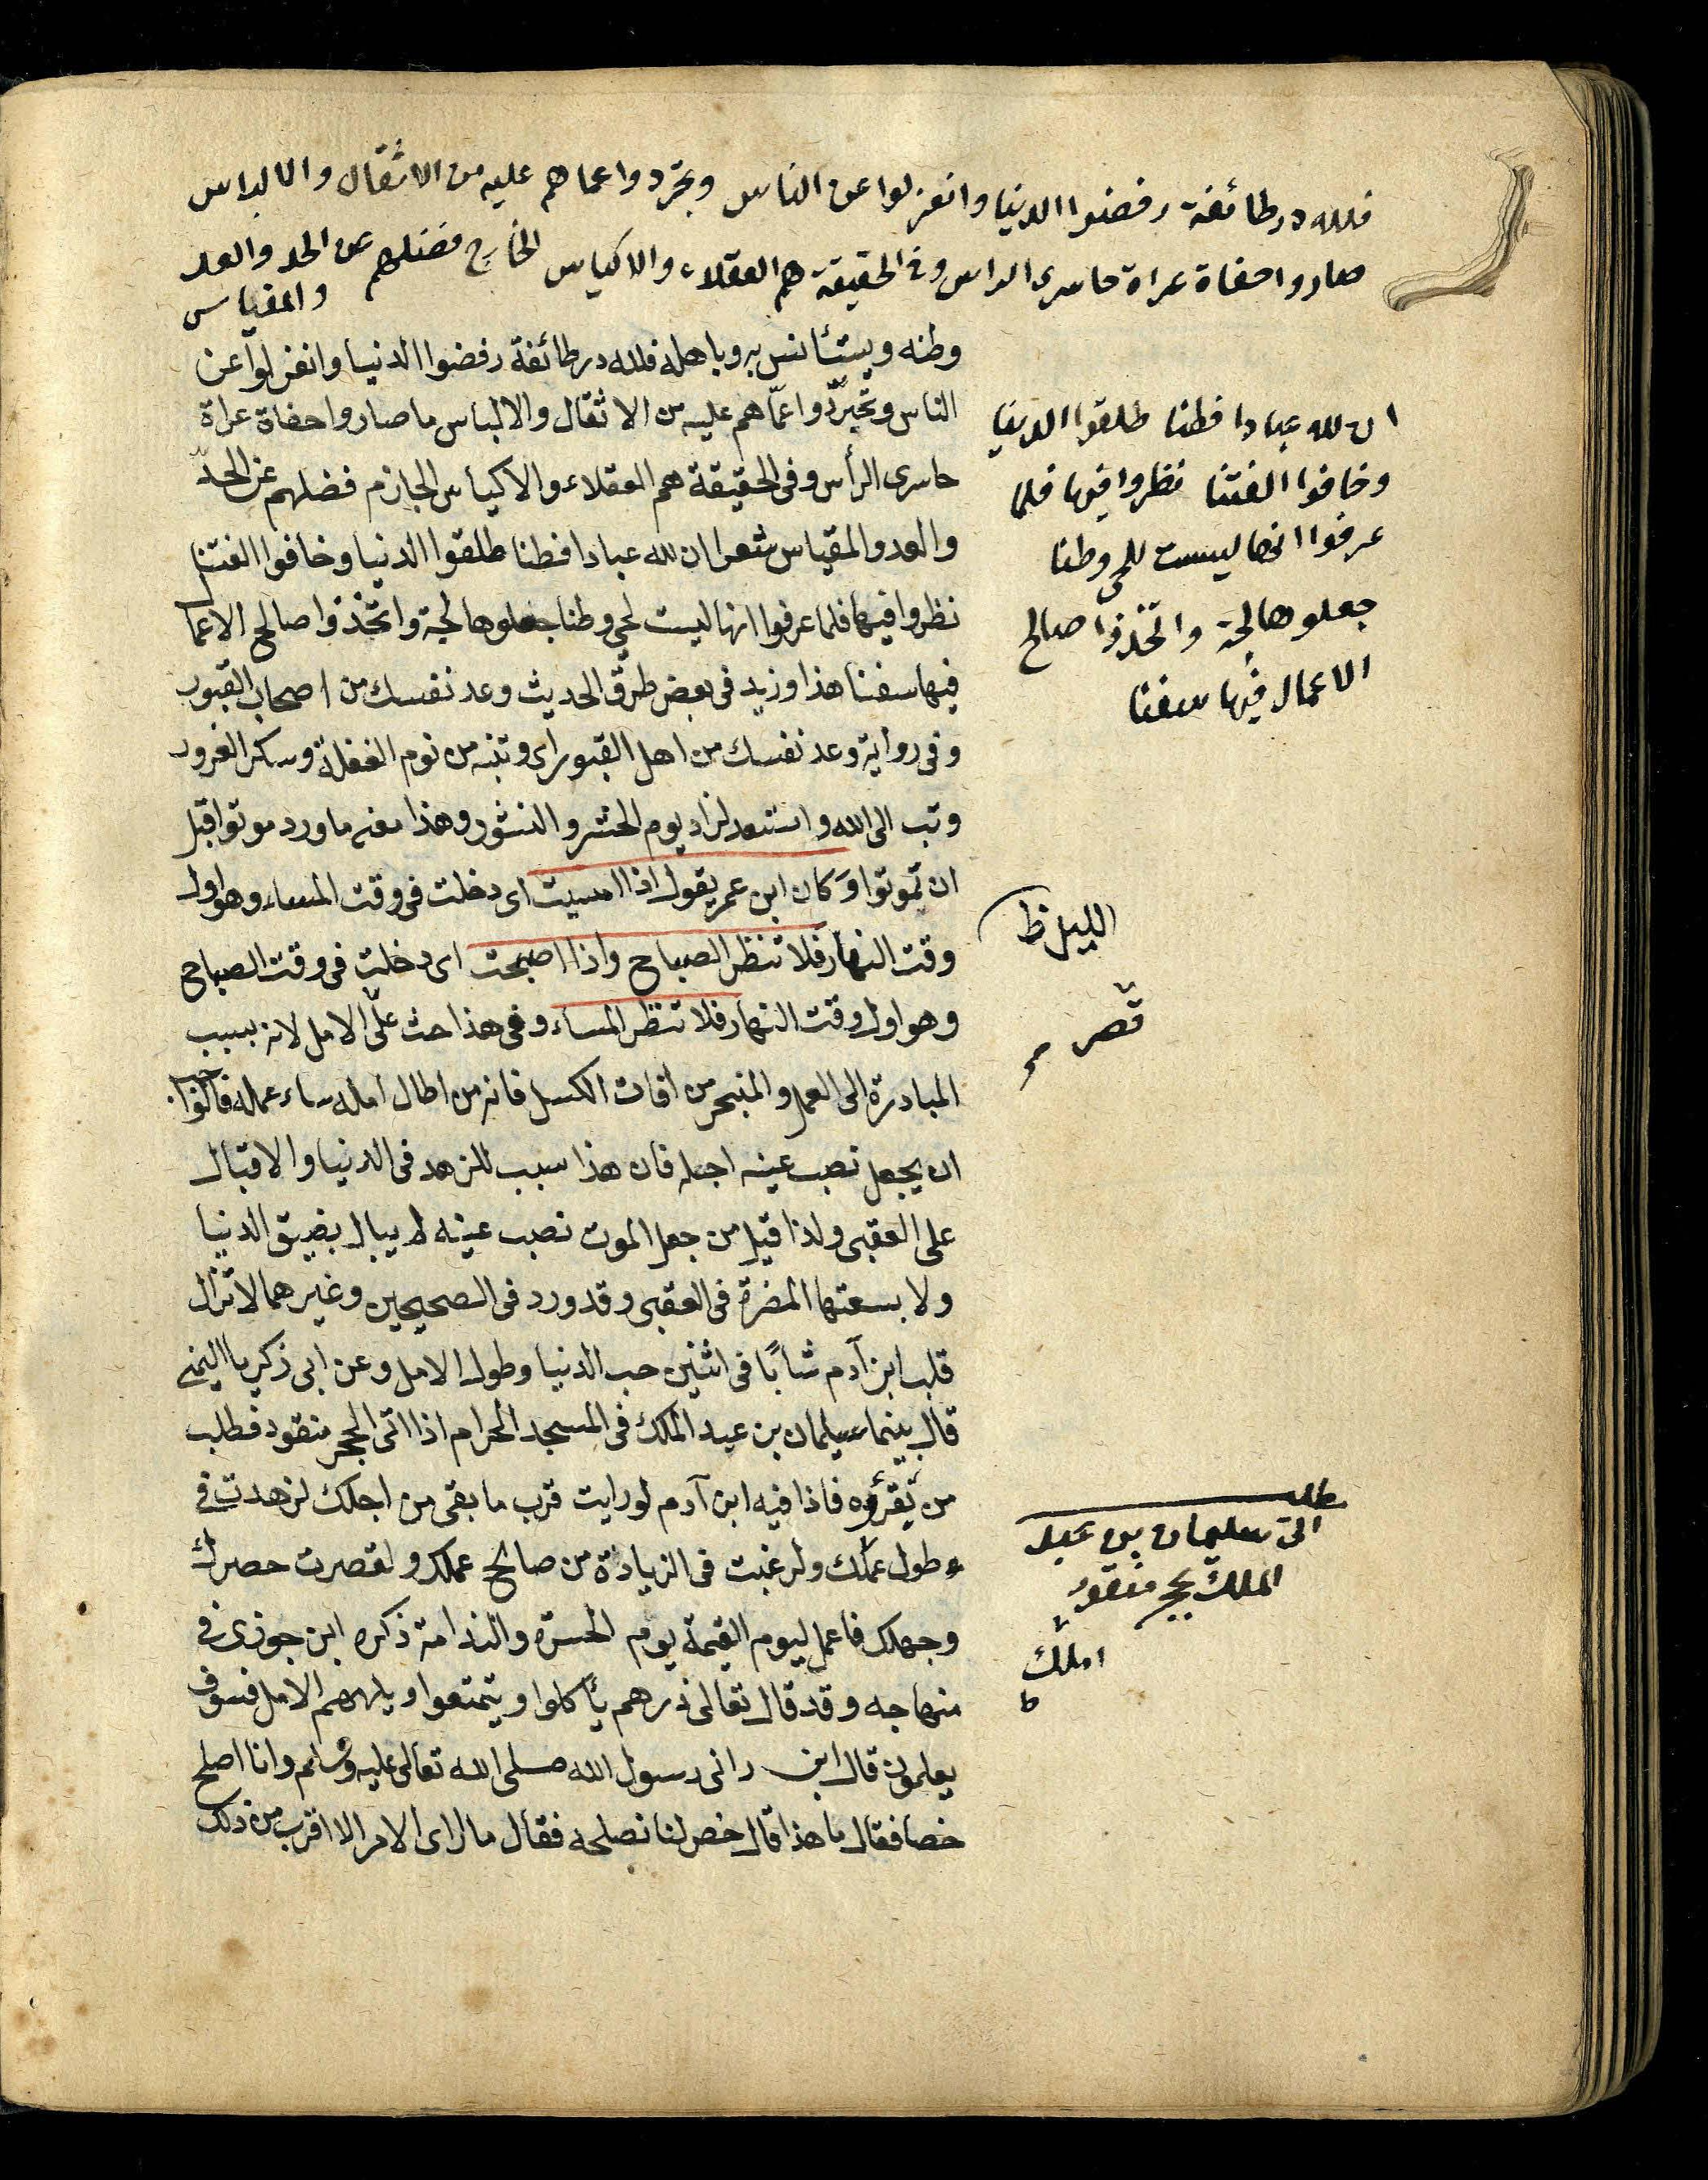 فلله در طائفة رفضوا الدنيا وانعزلوا عن الناس وتجردوا عما هم عليه من الاثقال والالباس
صاروا حفاة عراة حاسرى الراس وفى الحقيقة هم العقلاء والاكياس الخارج فضلهم عن الحد والعد
والمقياس
وطنه ويستأنس به وباهله فلله در طائفة رفضوا الدنيا وانعزلوا عن
الناس وتجردوا عمّا هم عليه من الاثقال والالباس ما صاروا حفاة عراة
حاسرى الرأس وفى الحقيقة هم العقلاء والاكياس الجازم فضلهم عن الحدّ
والعد والمقياس شعر ان لله عبادا فطنا طلقوا الدنيا وخافوا الفتنا
نظروا فيها فلما عرفوا انها ليست لحى وطنا جعلوها لجة واتخذوا صالح الاعما
فيها سفنا هذا وزيد فى بعض طرق الحديث وعد نفسك من اصحاب القبور
وفى رواية وعد نفسك من اهل القبور اى وتنبه من نوم الغفلة وسكر الغرور
وتب الى الله واستعد لزاد يوم الحشر والنشور وهذا معنى ما ورد موتوا قبل
ان تموتوا وَكان ابن عمر يقول اذا امسيت اى دخلت فى وقت المساء وهو اول
وقت النهار فلا تنظر الصباح واذا اصبحت اى دخلت فى وقت الصباح
وهو اول وقت النهار فلا تنظر المساء وفى هذا حث على الامل لانه بسبب
المبادرة الى العمل والمنجر من افات الكسل فانه من اطال امله ساء عمله فالحق
ان يجعل نصب عينه اجله فان هذا سبب للزهد فى الدنيا والاقبال
على العقبى ولذا قيل من جعل الموت نصب عينه لم يبال بضيق الدنيا
ولا بسعتها المضرة فى العقبى وقد ورد فى الصحيحين وغيرهما لا تزال
قلب ابن آدم شابًا فى اثنين حب الدنيا وطول الامل وعن ابى زكريا اليمنى
قال بينما سليمان بن عبد الملك فى المسجد الحرام اذا اتى الحجر منقود فطلب
من يقرؤه فاذا فيه ابن آدم لو رايت قرب ما بقى من اجلك لزهدت فى
طول عملك ولرغبت فى الزيادة من صالح عملك ولقصرت حصرك
وجهلك فاعمل ليوم القيمة يوم الحسرة والندامة ذكره ابن جوزى فى
منهاجه وقد قال تعالى ذرهم يأكلوا ويتمتعوا ويلههم الامل فسوف
يعلمون قال ابن رانى رسول الله صلى الله تعالى عليه وسلم وانا اصلح
خصا فقال ما هذا قال خص لنا نصلحه فقال ما ارى الامر الا اقرب من ذلك
ان لله عبادا فطنا طلقوا الدنيا
وخافوا الفتنا نظروا فيها فلما
عرفوا انها ليست للحى وطنا
جعلوها لجة واتخذوا صالح
الاعمال فيها سفنا
الليل ظ
قصر
اتى سليمان بن عبد
الملك بحجر منقور
املك
ط